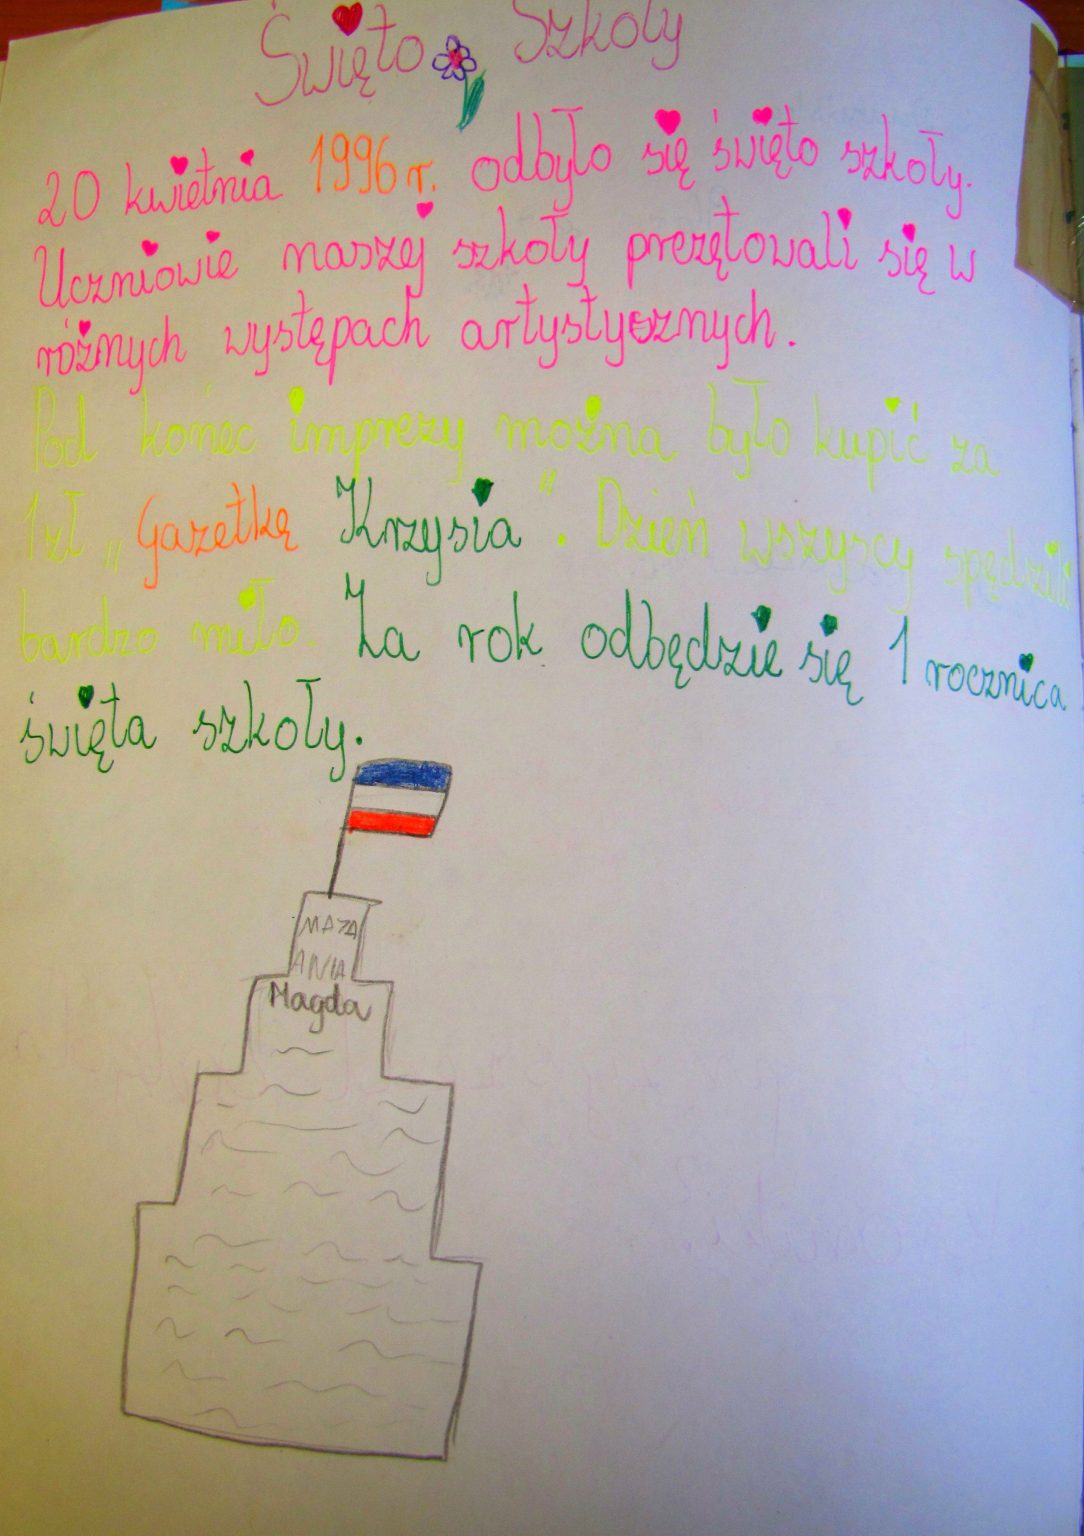 Święto Szkoły
20 kwietnia 1996 r. odbyło się święto szkoły.
Uczniowie naszej szkoły prezętowali się w
różnych występach artystycznych.
Pod koniec imprezy można było kupić za
1 zł „Gazetkę Krzysia". Dzień wszyscy spędzili
bardzo miło. Za rok odbędzie się 1 rocznica
święta szkoły.
ANIA
Magda